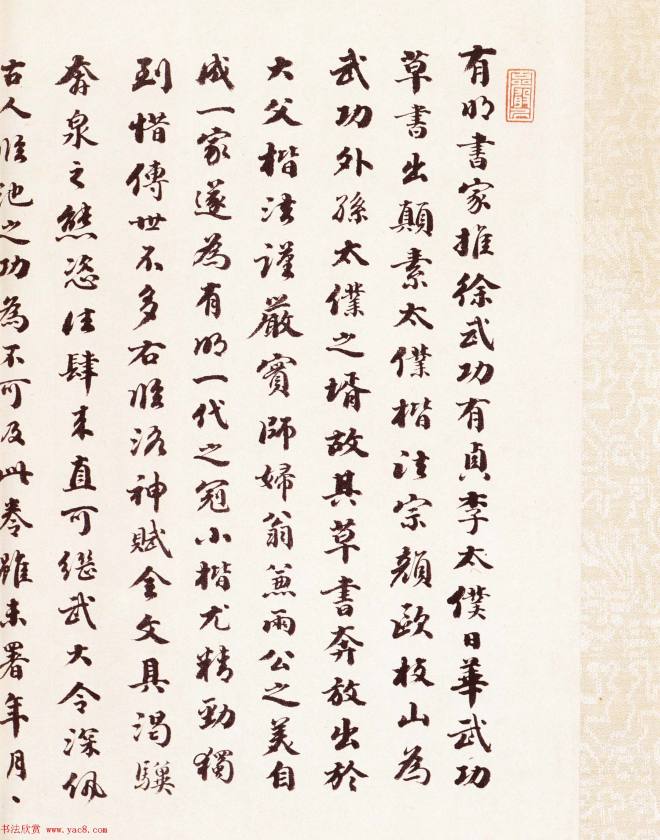 有明書家推徐武功有貞李太僕日華武功
草書出顛素太僕楷法宗顏歐枝山為
武功外孫太僕之壻故其草書奔放出於
大父楷法謹嚴實師婦翁兼兩公之美自
成一家遂為有明一代之冠小楷尤精勁獨
到惜傳世不多右臨洛神賦全文具渴驥
奔泉之態恣住肆来直可継武大令深佩
古人臨池之功為不可及此卷雖未署年月、
书法欣赏 www.yac8.com